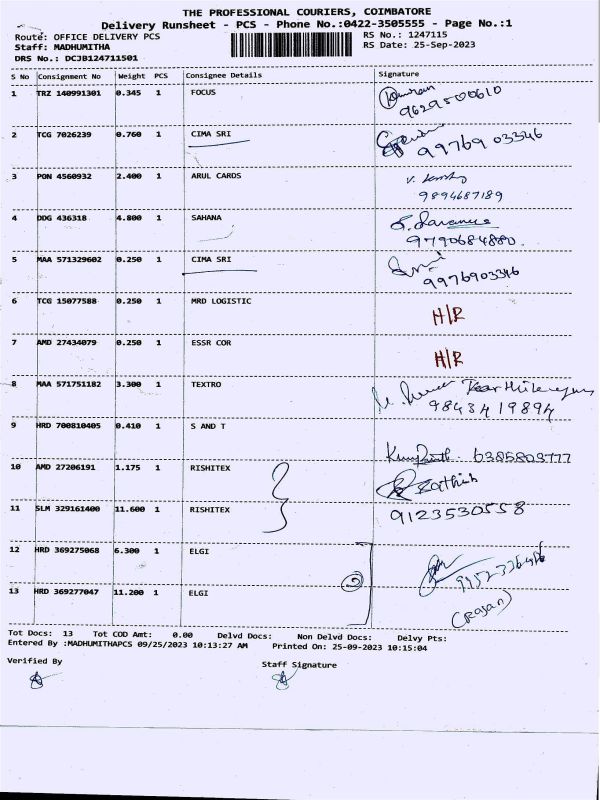 THE PROFESSIONAL COURIERS, COIMBATORE
Delivery Runsheet - PCS - Phone No.:0422-3505555 - Page No.:1
Route: OFFICE DELIVERY PCS RS No.: 1247115
Staff: MADHUMITHA RS Date: 25-Sep-2023
DRS No.: DCJB124711501
S No Consignment No Weight PCS Consignee Details Signature
1 TRZ 140991301 0.345 1 FOCUS
9629500610
2 TCG 7026239 0.760 1 CIMA SRI 99769 03346
3 PON 4560932 2.400 1 ARUL CARDS
9894687189
4 DDG 436318 4.800 1 SAHANA
9790684880.
5 MAA 571329602 0.250 1 CIMA SRI
9976903346
6 TCG 15077588 0.250 1 MRD LOGISTIC
H/R
7 AMD 27434079 0.250 1 ESSR COR
H/R
8 MAA 571751182 3.300 1 TEXTRO
98434 19894
9 HRD 700810405 0.410 1 S AND T
6385803777
10 AMD 27206191 1.175 1 RISHITEX
11 SLM 329161400 11.600 1 RISHITEX
9123530558
12 HRD 369275068 6.300 1 ELGI
2
13 HRD 369277047 11.200 1 ELGI
(Rajan)
Tot Docs: 13 Tot COD Amt: 0.00 Delvd Docs: Non Delvd Docs: Delvy Pts:
Entered By :MADHUMITHAPCS 09/25/2023 10:13:27 AM Printed On: 25-09-2023 10:15:04
Verified By Staff Signature